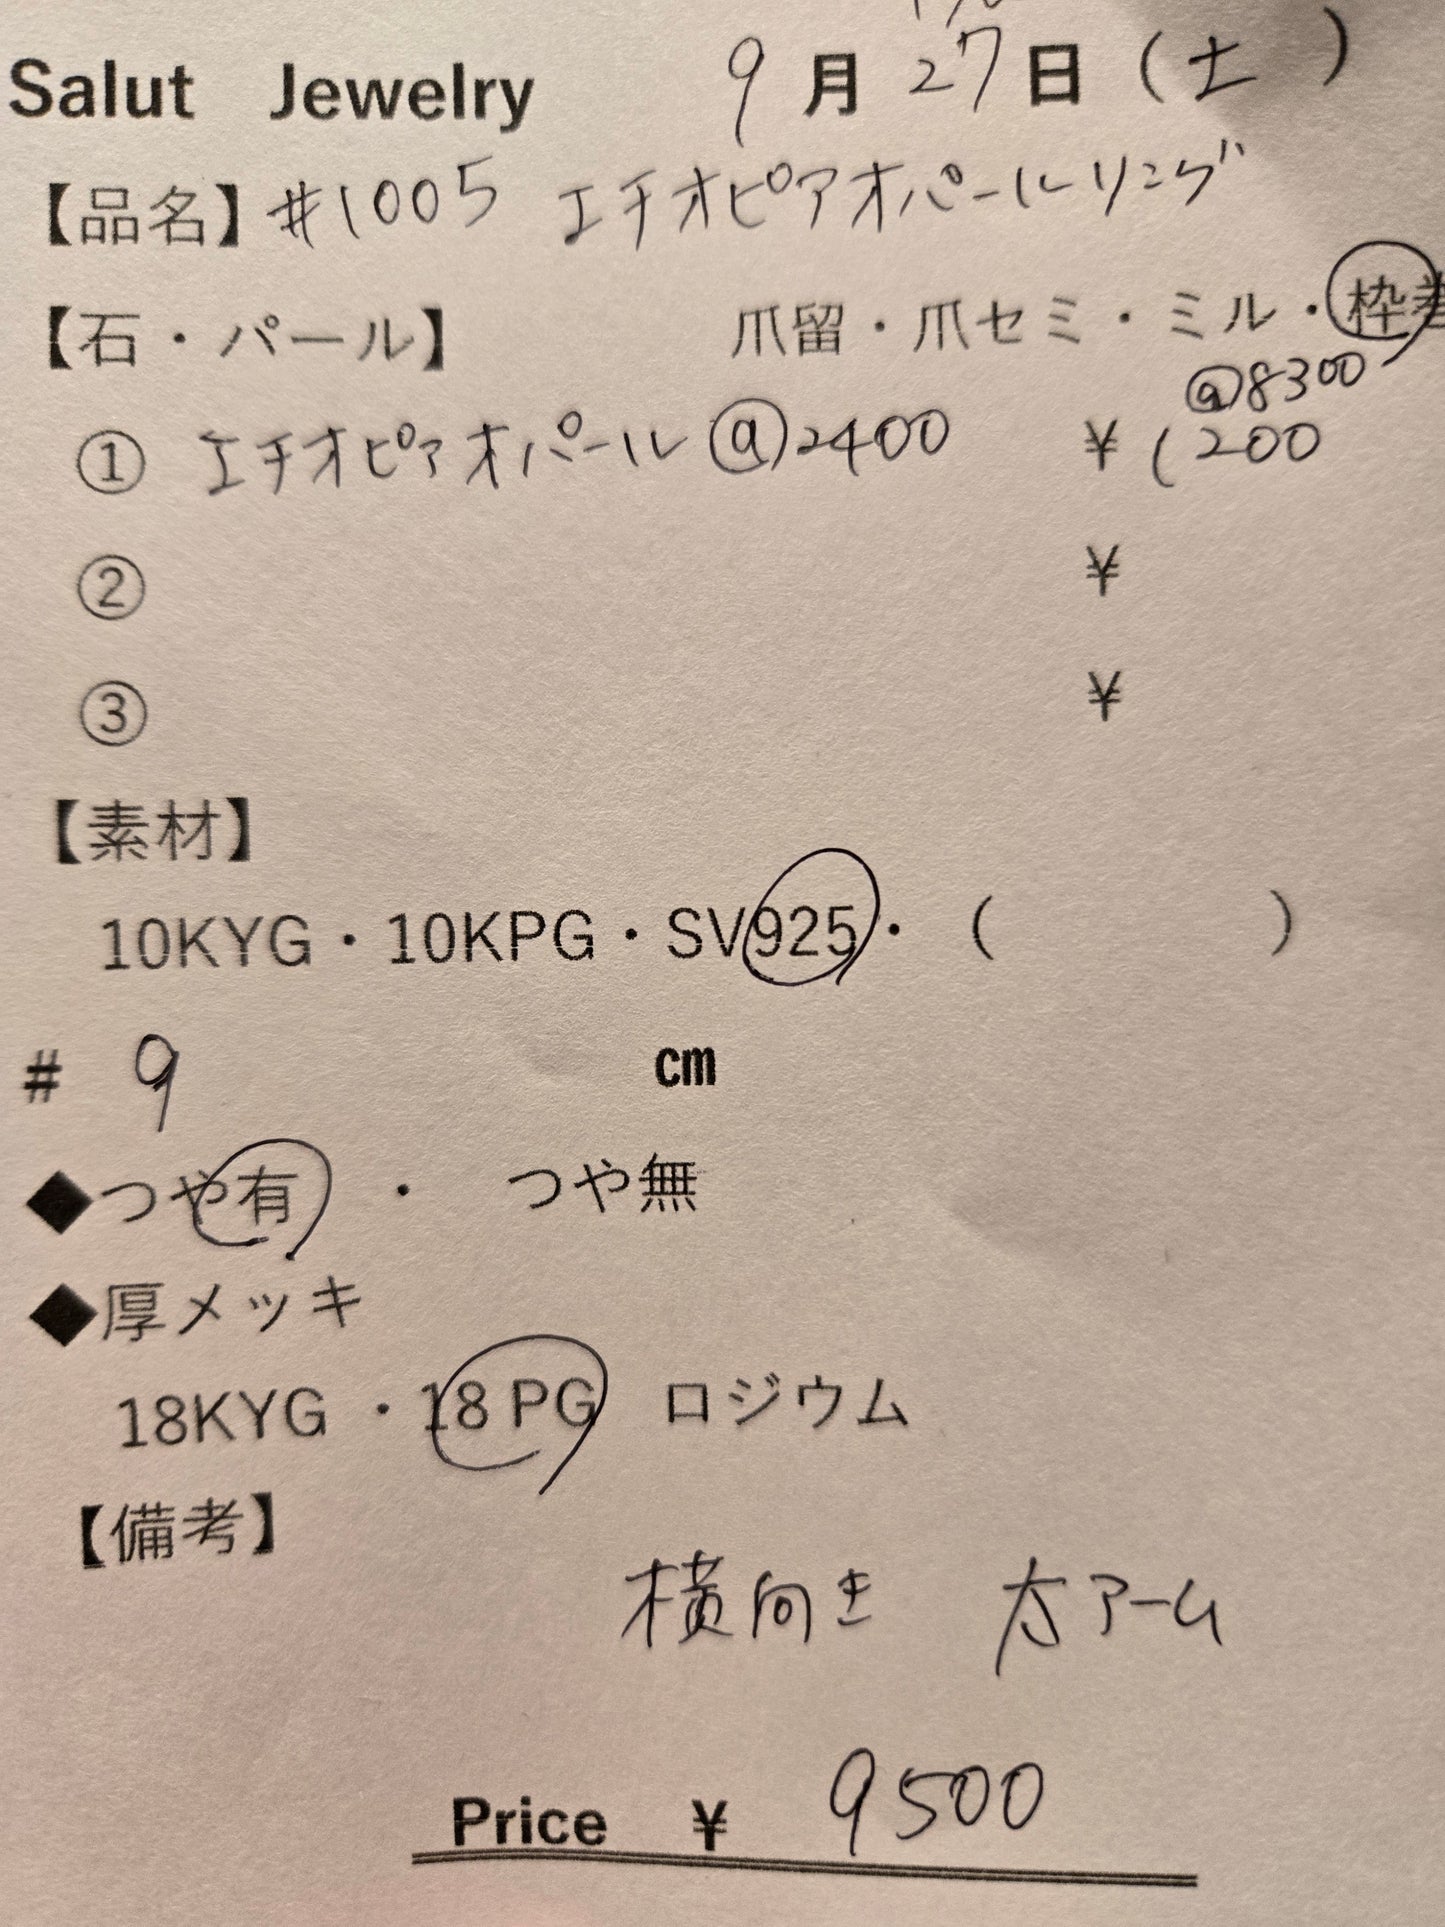 Salut Jewelry 9月27日(土)
【品名】#1005 エチオピアオパールリング
【石・パール】 爪留・爪セミ・ミル・枠巻
@8300
① エチオピアオパール @2400 ¥1200
② ¥
③ ¥
【素材】
10KYG・10KPG・SV925・( )
# 9 cm
◆つや有 ・ つや無
◆厚メッキ
18KYG ・18 PG ロジウム
【備考】
横向き 太アーム
Price ¥ 9500